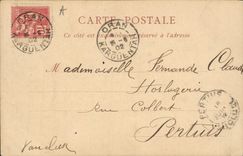 CARTE POSTALE
Ce côté est exclusivement réservé à l'adresse
ORAN
KARGUENTAH
02
ORAN
KARGUENTAH
02
Mademoiselle Fernande Claude
Horlogerie
rue Colbert
PERTUIS
Pertuis
Vaucluse